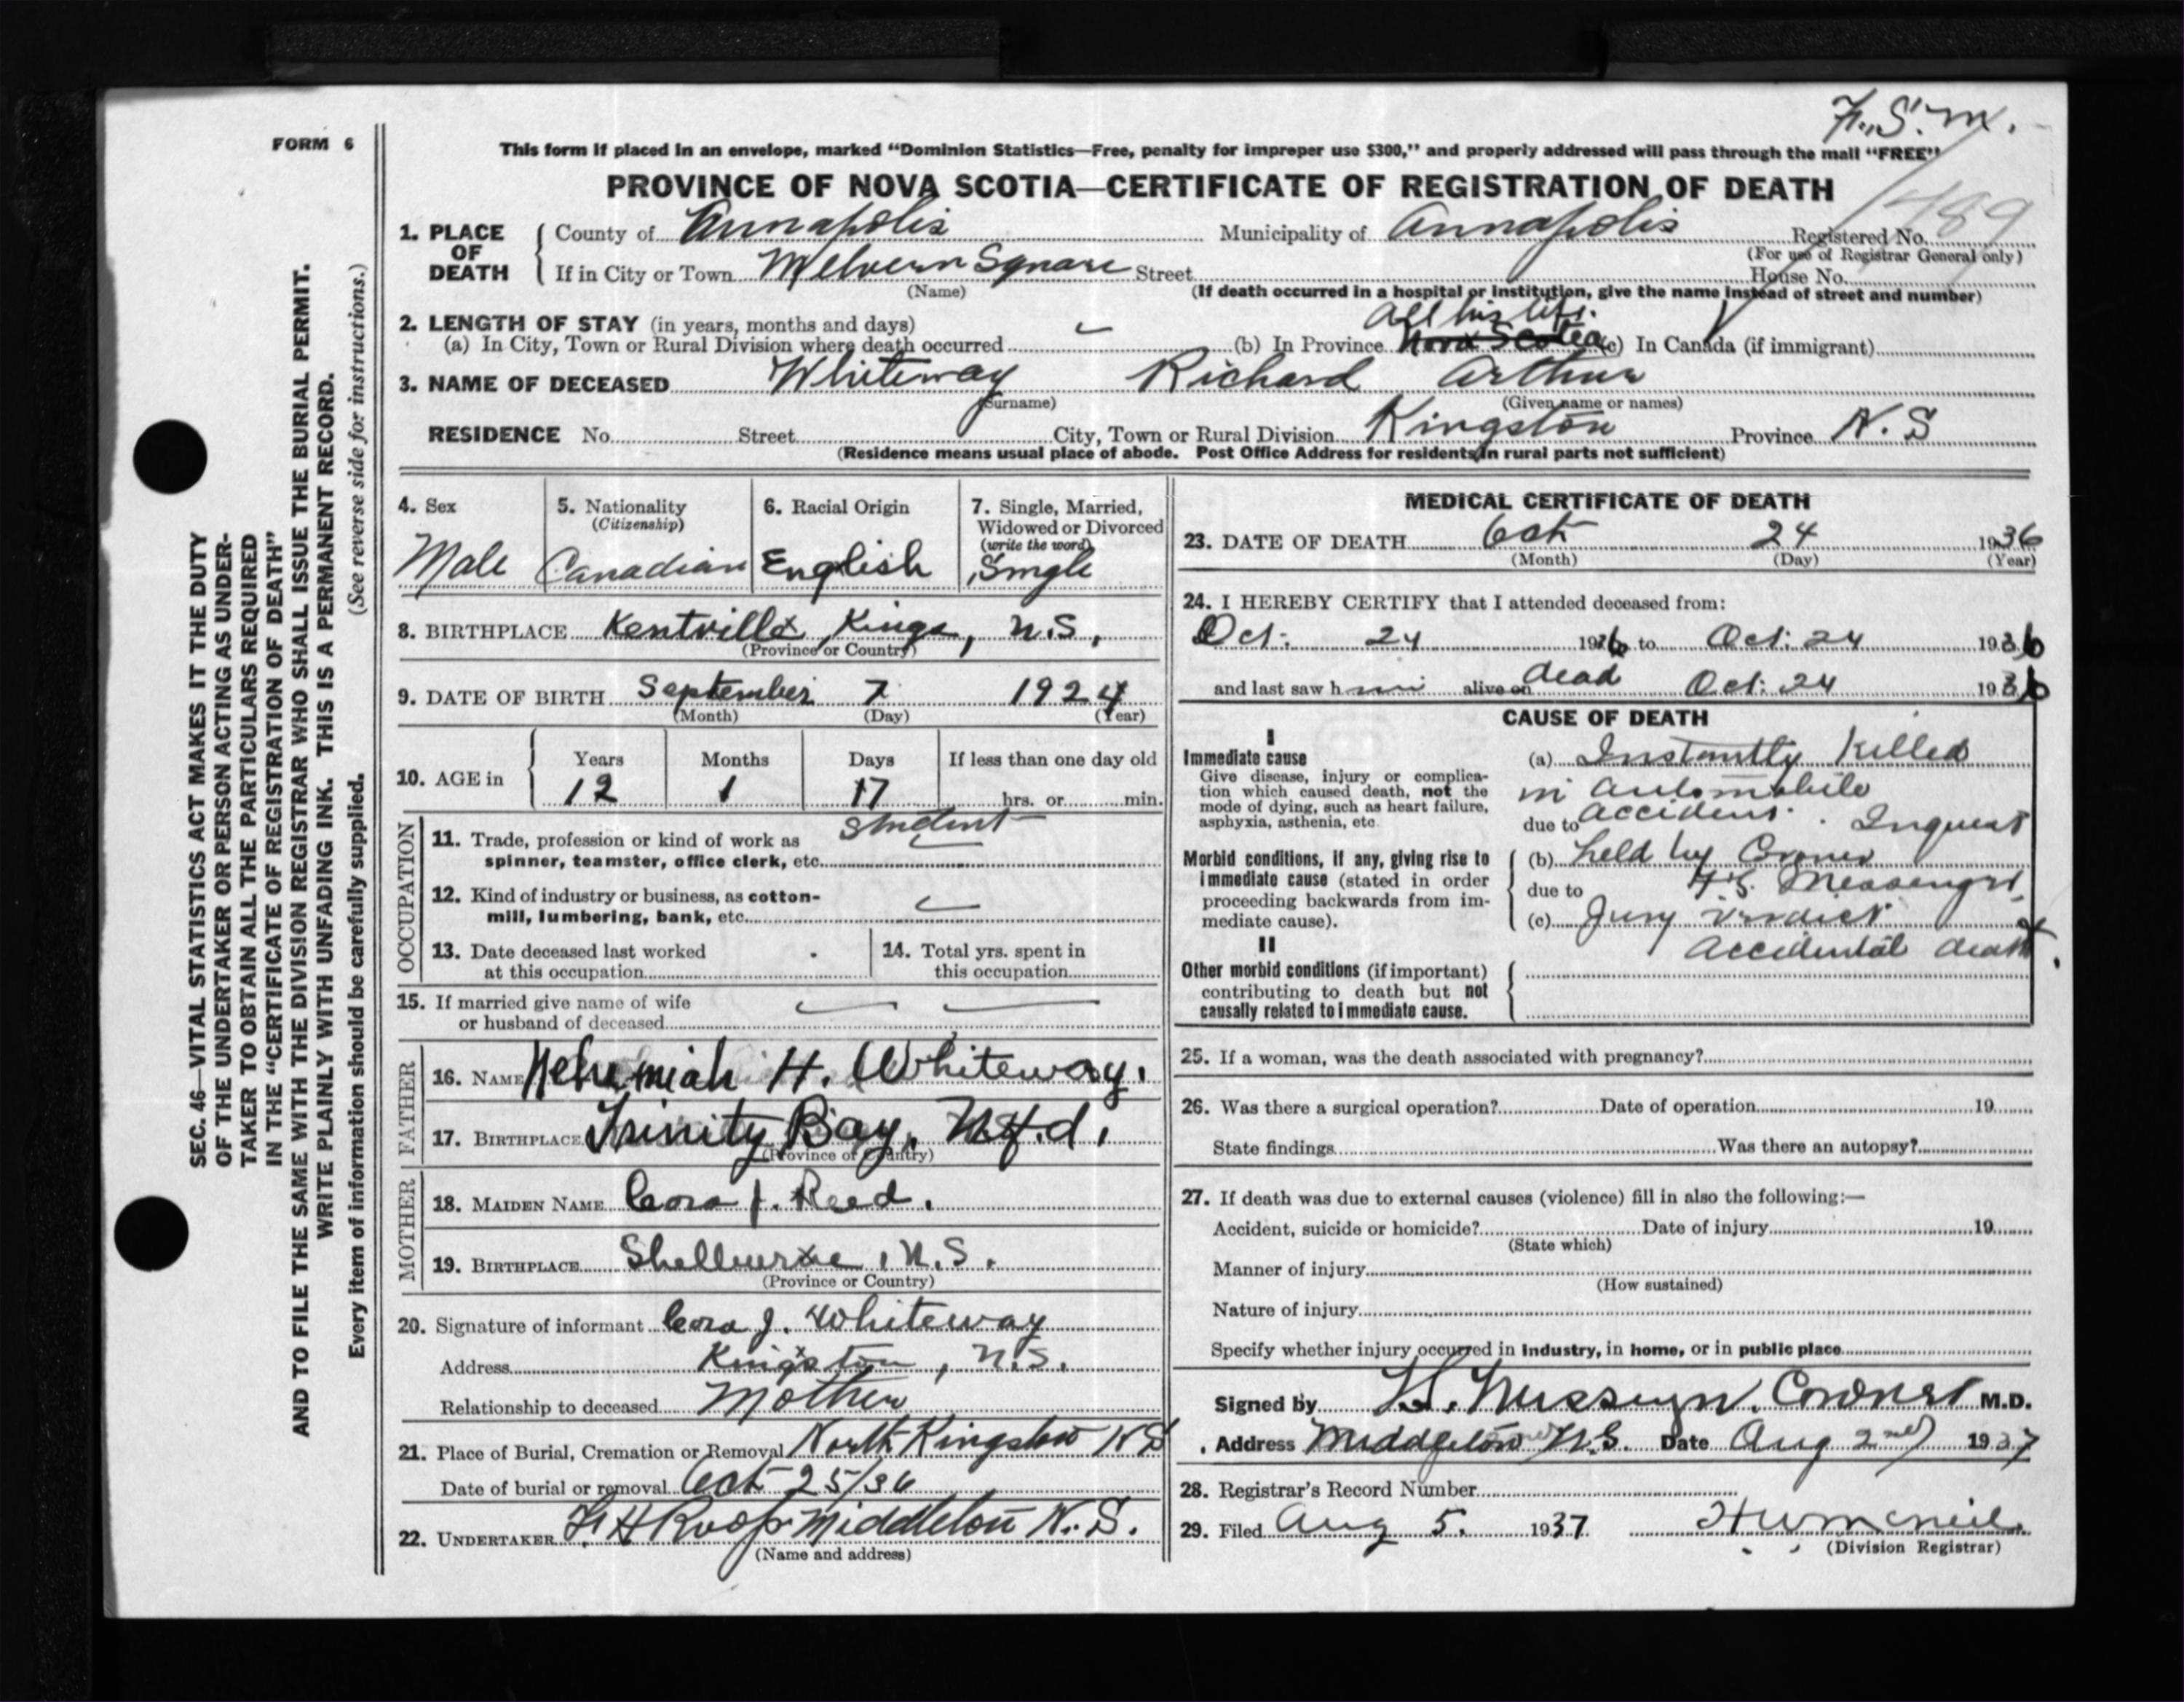 F. S. M.
FORM 6
This form if placed in an envelope, marked “Dominion Statistics—Free, penalty for improper use $300,” and properly addressed will pass through the mail “FREE”
PROVINCE OF NOVA SCOTIA—CERTIFICATE OF REGISTRATION OF DEATH
1. PLACE OF DEATH County of Annapolis Municipality of Annapolis Registered No. 1489
(For use of Registrar General only)
If in City or Town Melvern Square Street House No.
(Name) (If death occurred in a hospital or institution, give the name instead of street and number)
2. LENGTH OF STAY (in years, months and days) All his life.
(a) In City, Town or Rural Division where death occurred (b) In Province Nova Scotia (c) In Canada (if immigrant)
3. NAME OF DECEASED Whiteway Richard Arthur
(Surname) (Given name or names)
RESIDENCE No. Street City, Town or Rural Division Kingston Province N. S
(Residence means usual place of abode. Post Office Address for residents in rural parts not sufficient)
4. Sex Male
5. Nationality (Citizenship) Canadian
6. Racial Origin English
7. Single, Married, Widowed or Divorced (write the word) Single
8. BIRTHPLACE Kentville, Kings, N.S.
(Province or Country)
9. DATE OF BIRTH September 7 1924
(Month) (Day) (Year)
10. AGE in Years 12 Months 1 Days 17 If less than one day old hrs. or min.
OCCUPATION
11. Trade, profession or kind of work as spinner, teamster, office clerk, etc. Student
12. Kind of industry or business, as cotton-mill, lumbering, bank, etc.
13. Date deceased last worked at this occupation
14. Total yrs. spent in this occupation
15. If married give name of wife or husband of deceased
FATHER
16. NAME Nehemiah H. Whiteway.
17. BIRTHPLACE Trinity Bay, Nf.d.
(Province or Country)
MOTHER
18. MAIDEN NAME Cora J. Reed.
19. BIRTHPLACE Shelburne, N.S.
(Province or Country)
20. Signature of informant Cora J. Whiteway
Address Kingston, N.S.
Relationship to deceased Mother
21. Place of Burial, Cremation or Removal North Kingston NS
Date of burial or removal Oct 25/36
22. UNDERTAKER F H Roop Middleton N. S.
(Name and address)
MEDICAL CERTIFICATE OF DEATH
23. DATE OF DEATH Oct 24 1936
(Month) (Day) (Year)
24. I HEREBY CERTIFY that I attended deceased from:
Oct. 24 1936 to Oct. 24 1936
and last saw him alive on dead Oct. 24 1936
CAUSE OF DEATH
I
Immediate cause
Give disease, injury or complication which caused death, not the mode of dying, such as heart failure, asphyxia, asthenia, etc.
(a) Instantly Killed
in Automobile
due to accident. Inquest
Morbid conditions, if any, giving rise to immediate cause (stated in order proceeding backwards from immediate cause).
(b) held by Coroner
due to F.S. Messenger,
(c) Jury verdict
accidental death.
II
Other morbid conditions (if important) contributing to death but not causally related to immediate cause.
25. If a woman, was the death associated with pregnancy?
26. Was there a surgical operation? Date of operation 19
State findings Was there an autopsy?
27. If death was due to external causes (violence) fill in also the following:—
Accident, suicide or homicide? Date of injury 19
(State which)
Manner of injury
(How sustained)
Nature of injury
Specify whether injury occurred in industry, in home, or in public place
Signed by Coroner M.D.
Address Middleton N.S. Date Aug 2nd 1937
28. Registrar's Record Number
29. Filed Aug 5. 1937 H W McNeil
(Division Registrar)
SEC. 46—VITAL STATISTICS ACT MAKES IT THE DUTY
OF THE UNDERTAKER OR PERSON ACTING AS UNDER-
TAKER TO OBTAIN ALL THE PARTICULARS REQUIRED
IN THE “CERTIFICATE OF REGISTRATION OF DEATH”
AND TO FILE THE SAME WITH THE DIVISION REGISTRAR WHO SHALL ISSUE THE BURIAL PERMIT.
WRITE PLAINLY WITH UNFADING INK. THIS IS A PERMANENT RECORD.
Every item of information should be carefully supplied. (See reverse side for instructions.)